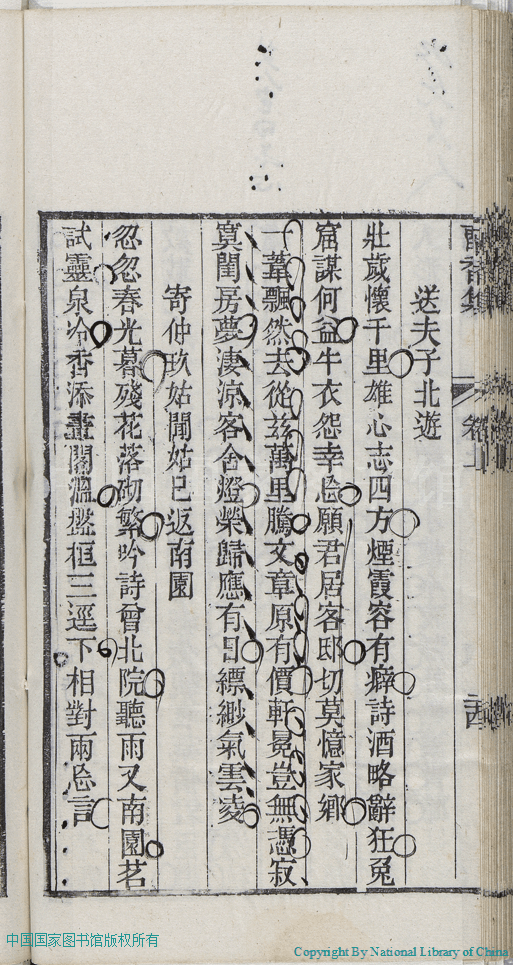 送夫子北遊
壯歲懷千里雄心志四方煙霞容有癖詩酒略辭狂兔
窟謀何益牛衣怨幸忘願君居客邸切莫憶家鄉
一葦飄然去從茲萬里騰文章原有價軒冕豈無憑寂
寞閨房夢凄涼客舍燈榮歸應有日縹緲氣雲凌
寄仲玖姑聞姑已返南園
忽忽春光暮殘花落砌繁吟詩曾北院聽雨又南園茗
試靈泉冷香添畫閣溫盤桓三逕下相對兩忘言
中国国家图书馆版权所有
Copyright By National Library of China